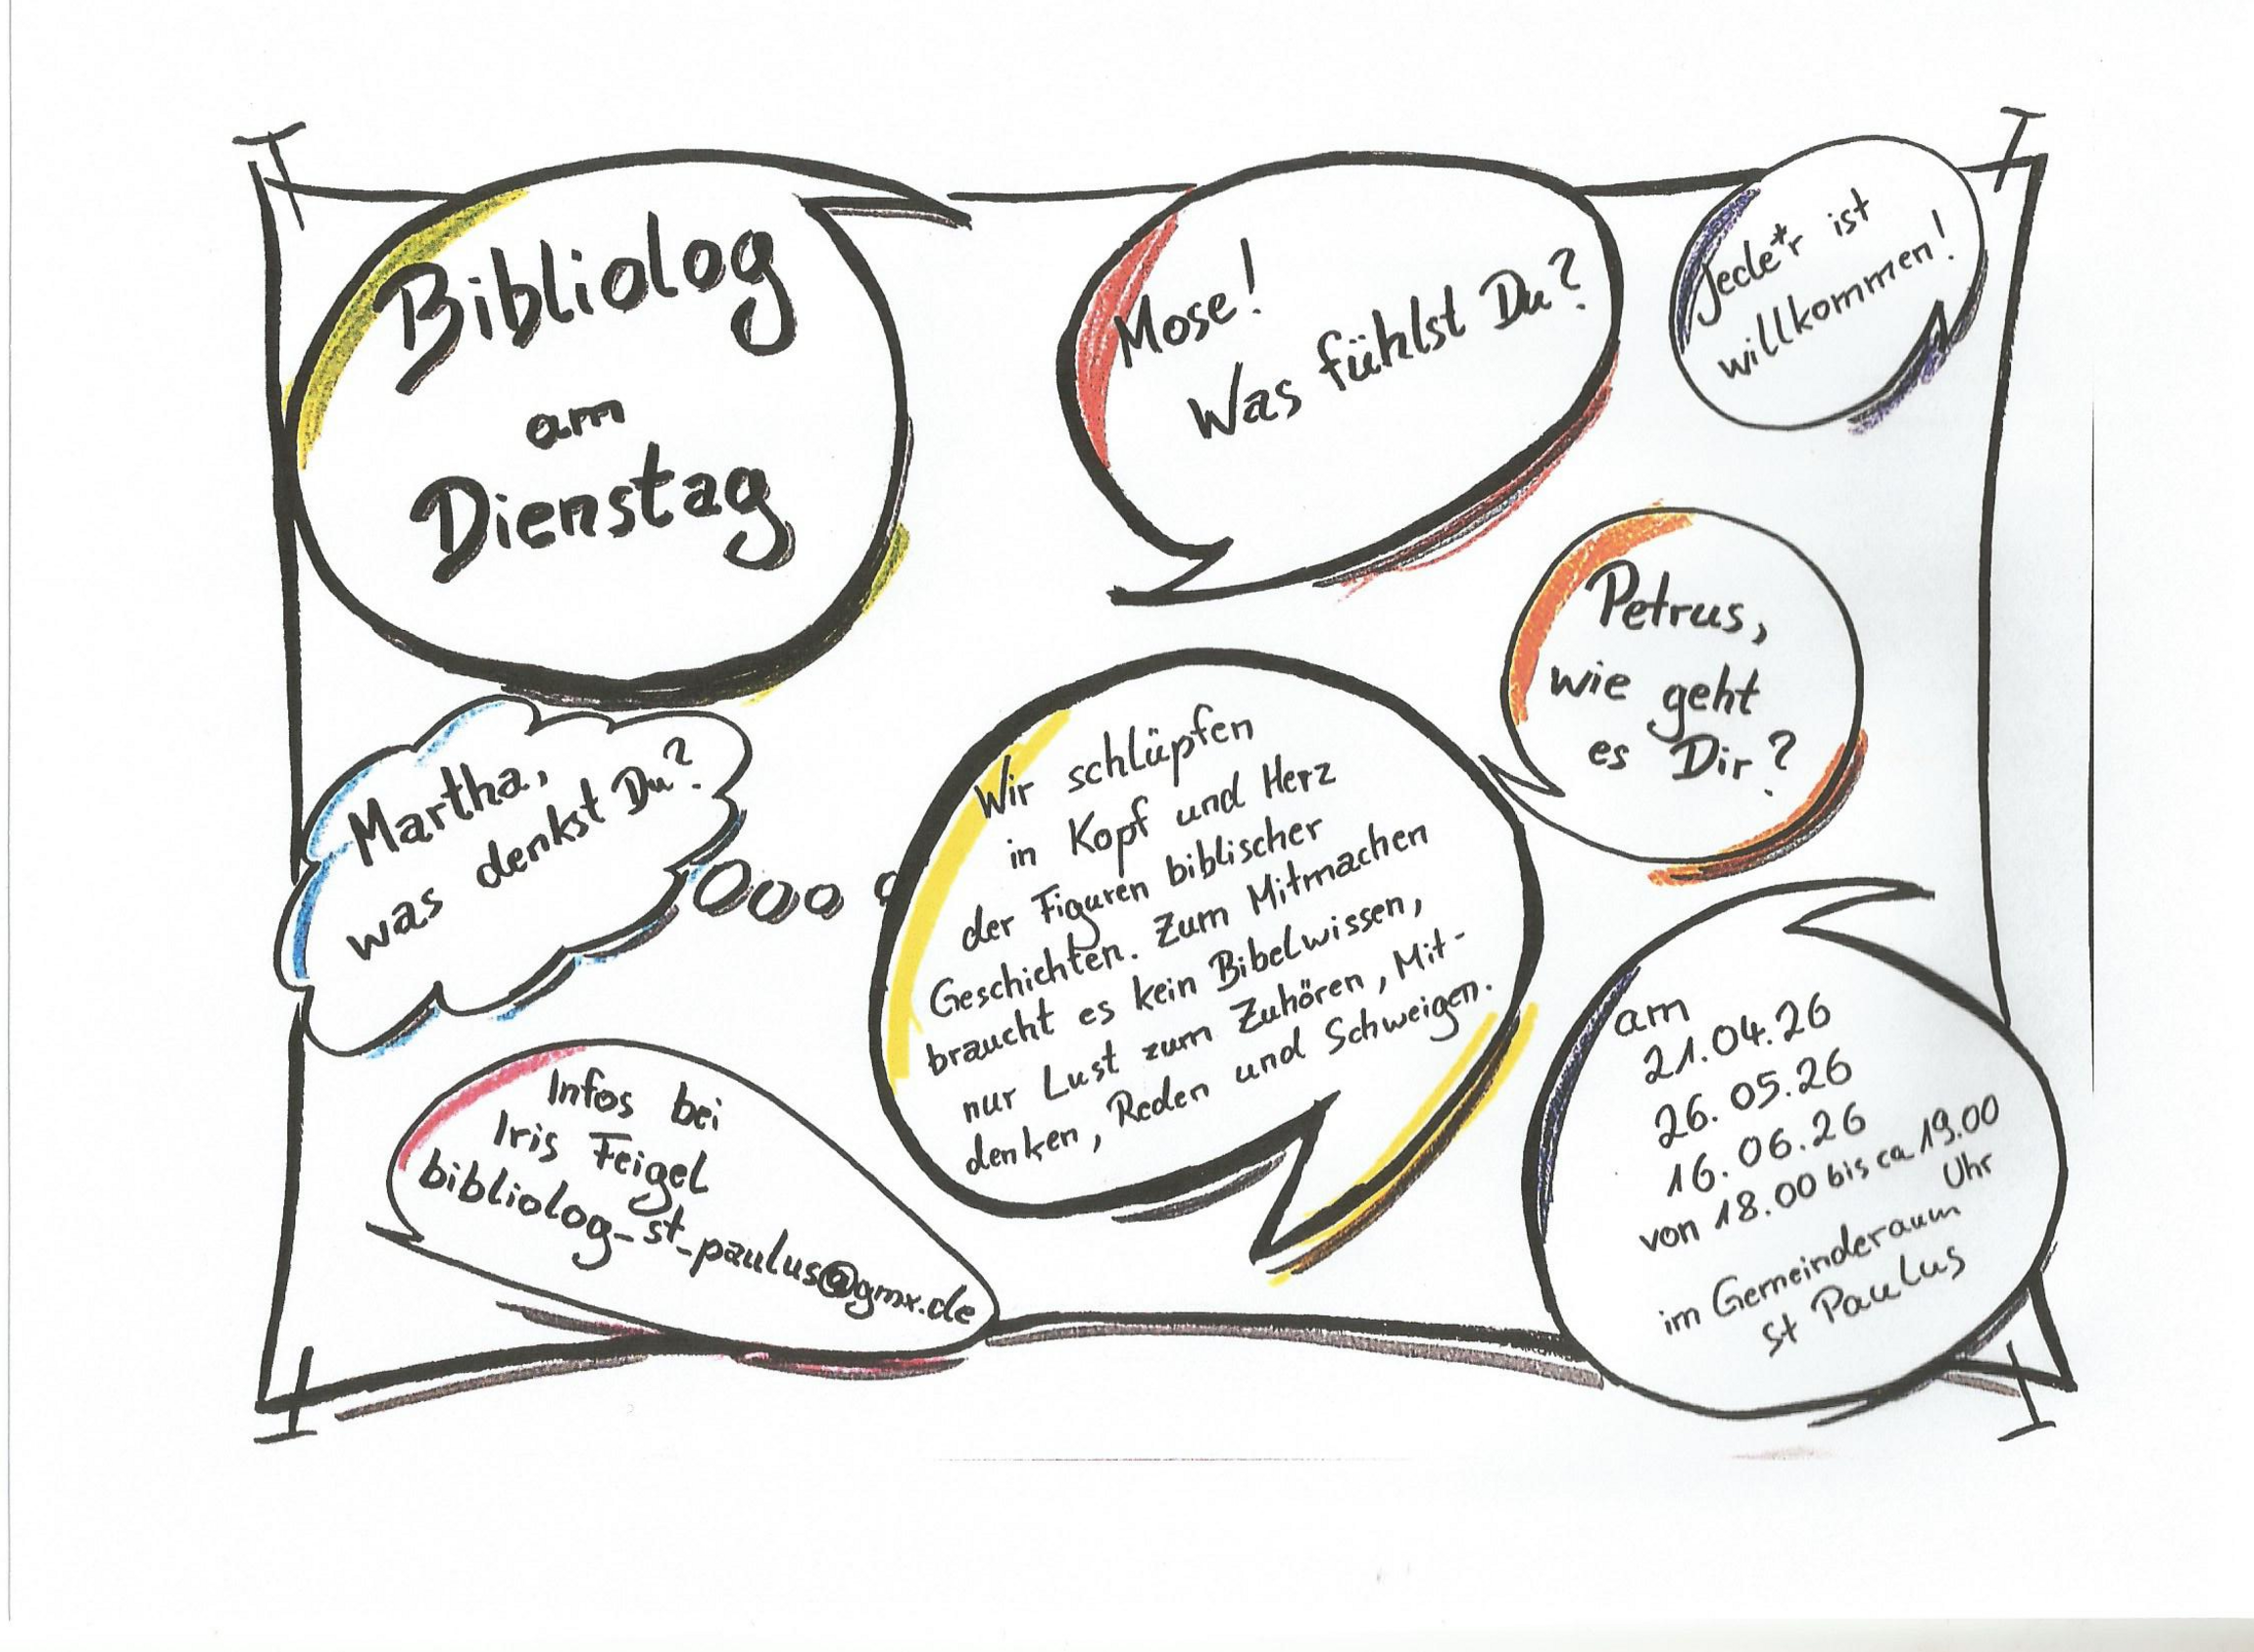 Bibliolog
am
Dienstag
Mose!
Was fühlst Du?
Jede*r ist
willkommen!
Petrus,
wie geht
es Dir?
Martha,
was denkst Du?
Wir schlüpfen
in Kopf und Herz
der Figuren biblischer
Geschichten. Zum Mitmachen
braucht es kein Bibelwissen,
nur Lust zum Zuhören, Mit-
denken, Reden und Schweigen.
Infos bei
Iris Feigel
bibliolog_st_paulus@gmx.de
am
21.04.26
26.05.26
16.06.26
von 18.00 bis ca 19.00
Uhr
im Gemeinderaum
St Paulus